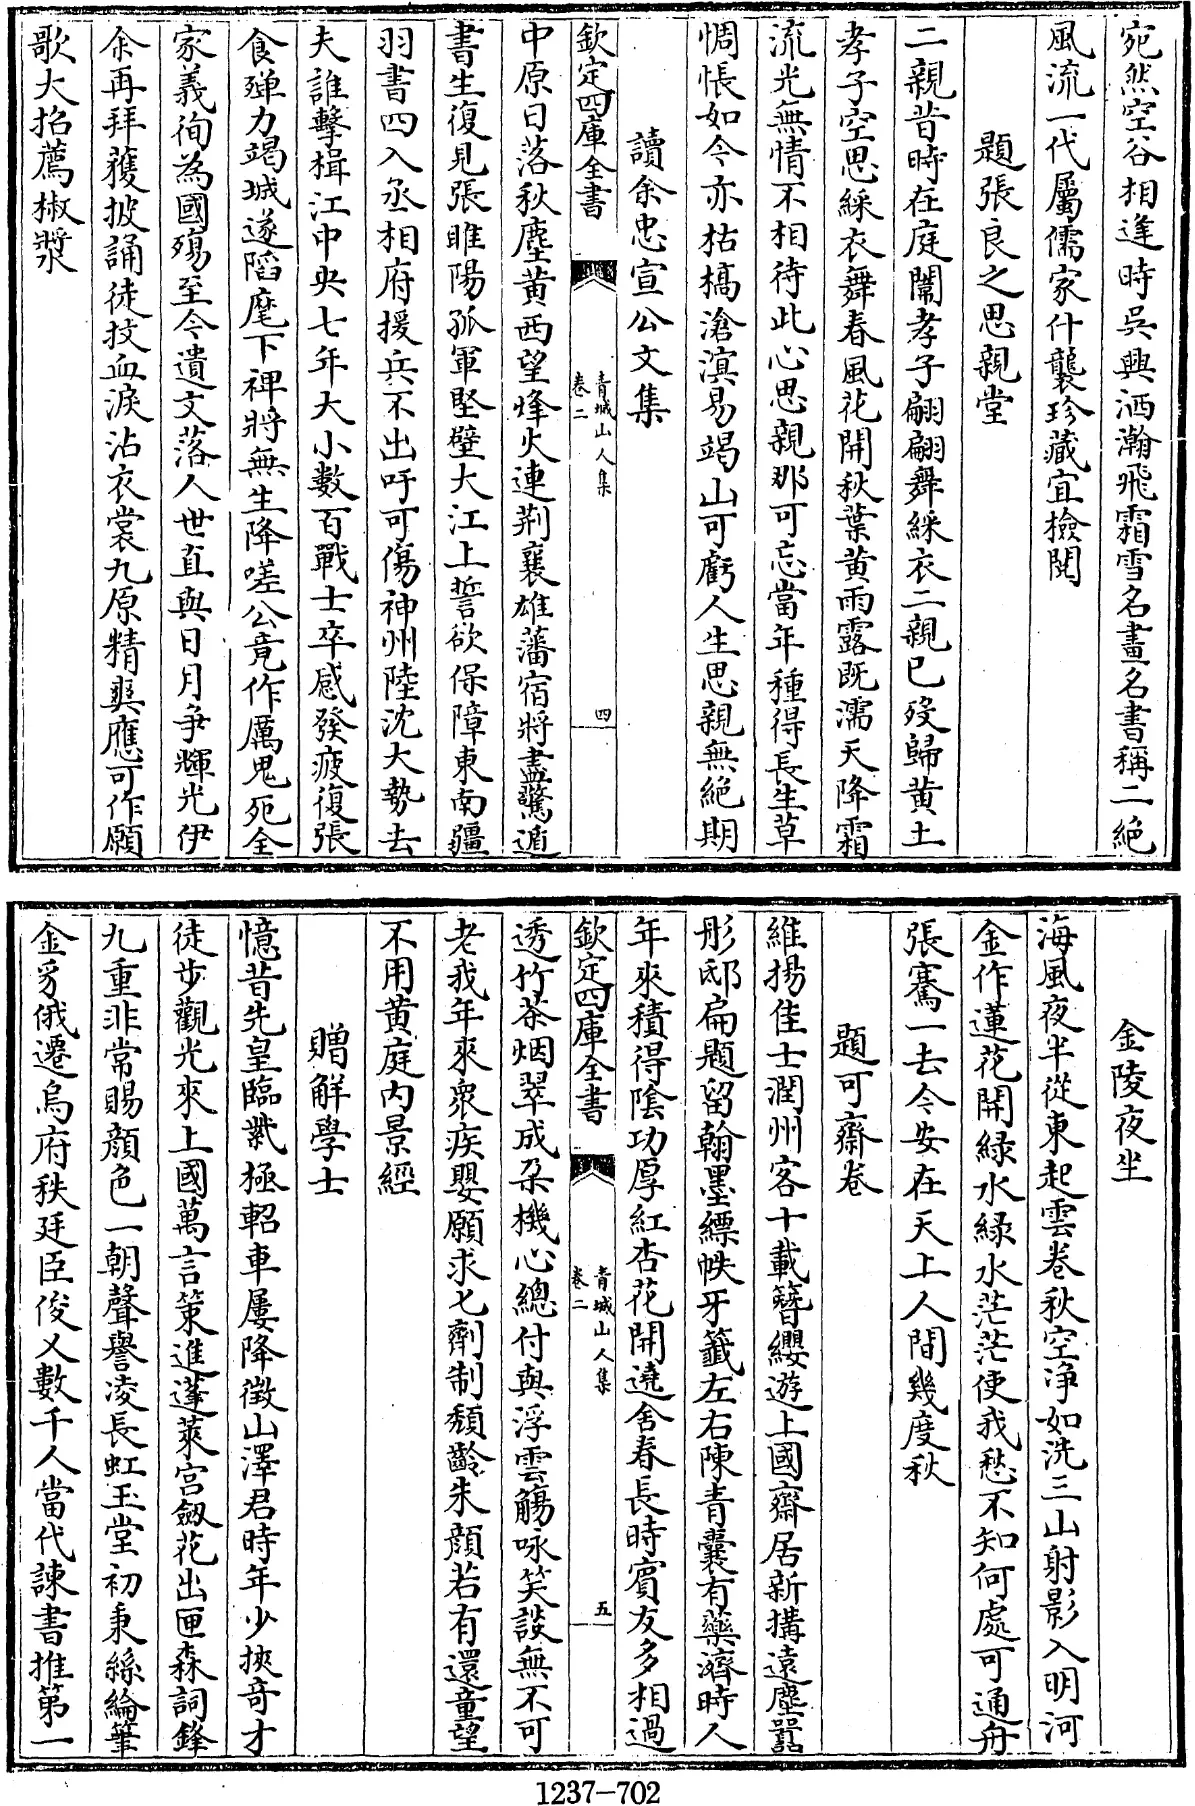 宛然空谷相逢時吳興洒瀚飛霜雪名畫名書稱二絶
風流一代屬儒家什襲珍藏宜檢閲
題張良之思親堂
二親昔時在庭闈孝子翩翩舞綵衣二親已歿歸黄土
孝子空思綵衣舞春風花開秋葉黄雨露既濡天降霜
流光無情不相待此心思親那可忘當年種得長生草
惆悵如今亦枯槁滄溟易竭山可虧人生思親無絶期
讀余忠宣公文集
欽定四庫全書
青城山人集
卷二
四
中原日落秋塵黄西望烽火連荆襄雄藩宿將盡驚遁
書生復見張睢陽孤軍堅壁大江上誓欲保障東南疆
羽書四入丞相府援兵不出吁可傷神州陸沈大勢去
夫誰擊楫江中央七年大小數百戰士卒感發疲復張
食殫力竭城遂䧟麾下裨將無生降嗟公竟作厲鬼死全
家義徇為國殤至今遺文落人世直與日月爭輝光伊
余再拜䕶披誦徒抆血淚沾衣裳九原精爽應可作願
歌大招薦椒漿
金陵夜坐
海風夜半從東起雲卷秋空浄如洗三山射影入明河
金作蓮花開緑水緑水茫茫使我愁不知何處可通舟
張騫一去今安在天上人間幾度秋
題可齋卷
維揚佳士潤州客十載簪纓遊上國齋居新搆遠塵囂
彤邸扁題留翰墨縹帙牙籖左右陳青囊有藥濟時人
年來積得陰功厚紅杏花開遶舍春長時賔友多相過
欽定四庫全書
青城山人集
卷二
五
透竹茶烟翠成朶機心總付與浮雲觴咏笑談無不可
老我年來衆疾嬰願求匕劑制頽齡朱顔若有還童望
不用黄庭内景經
贈解學士
憶昔先皇臨紫極軺車屢降徵山澤君時年少挾奇才
徒步觀光來上國萬言策進蓬萊宫劔花出匣森詞鋒
九重非常賜顔色一朝聲譽凌長虹玉堂初秉絲綸筆
金豸俄遷烏府秩廷臣俊乂數千人當代諫書推第一
1237-702